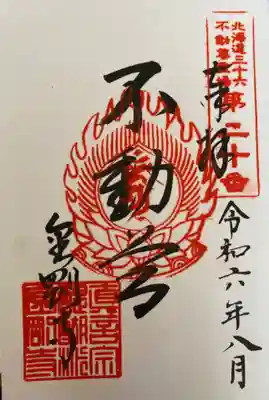 北海道三十六
不動尊霊場
第二十番
奉拝
令和六年八月
不動尊
金剛寺